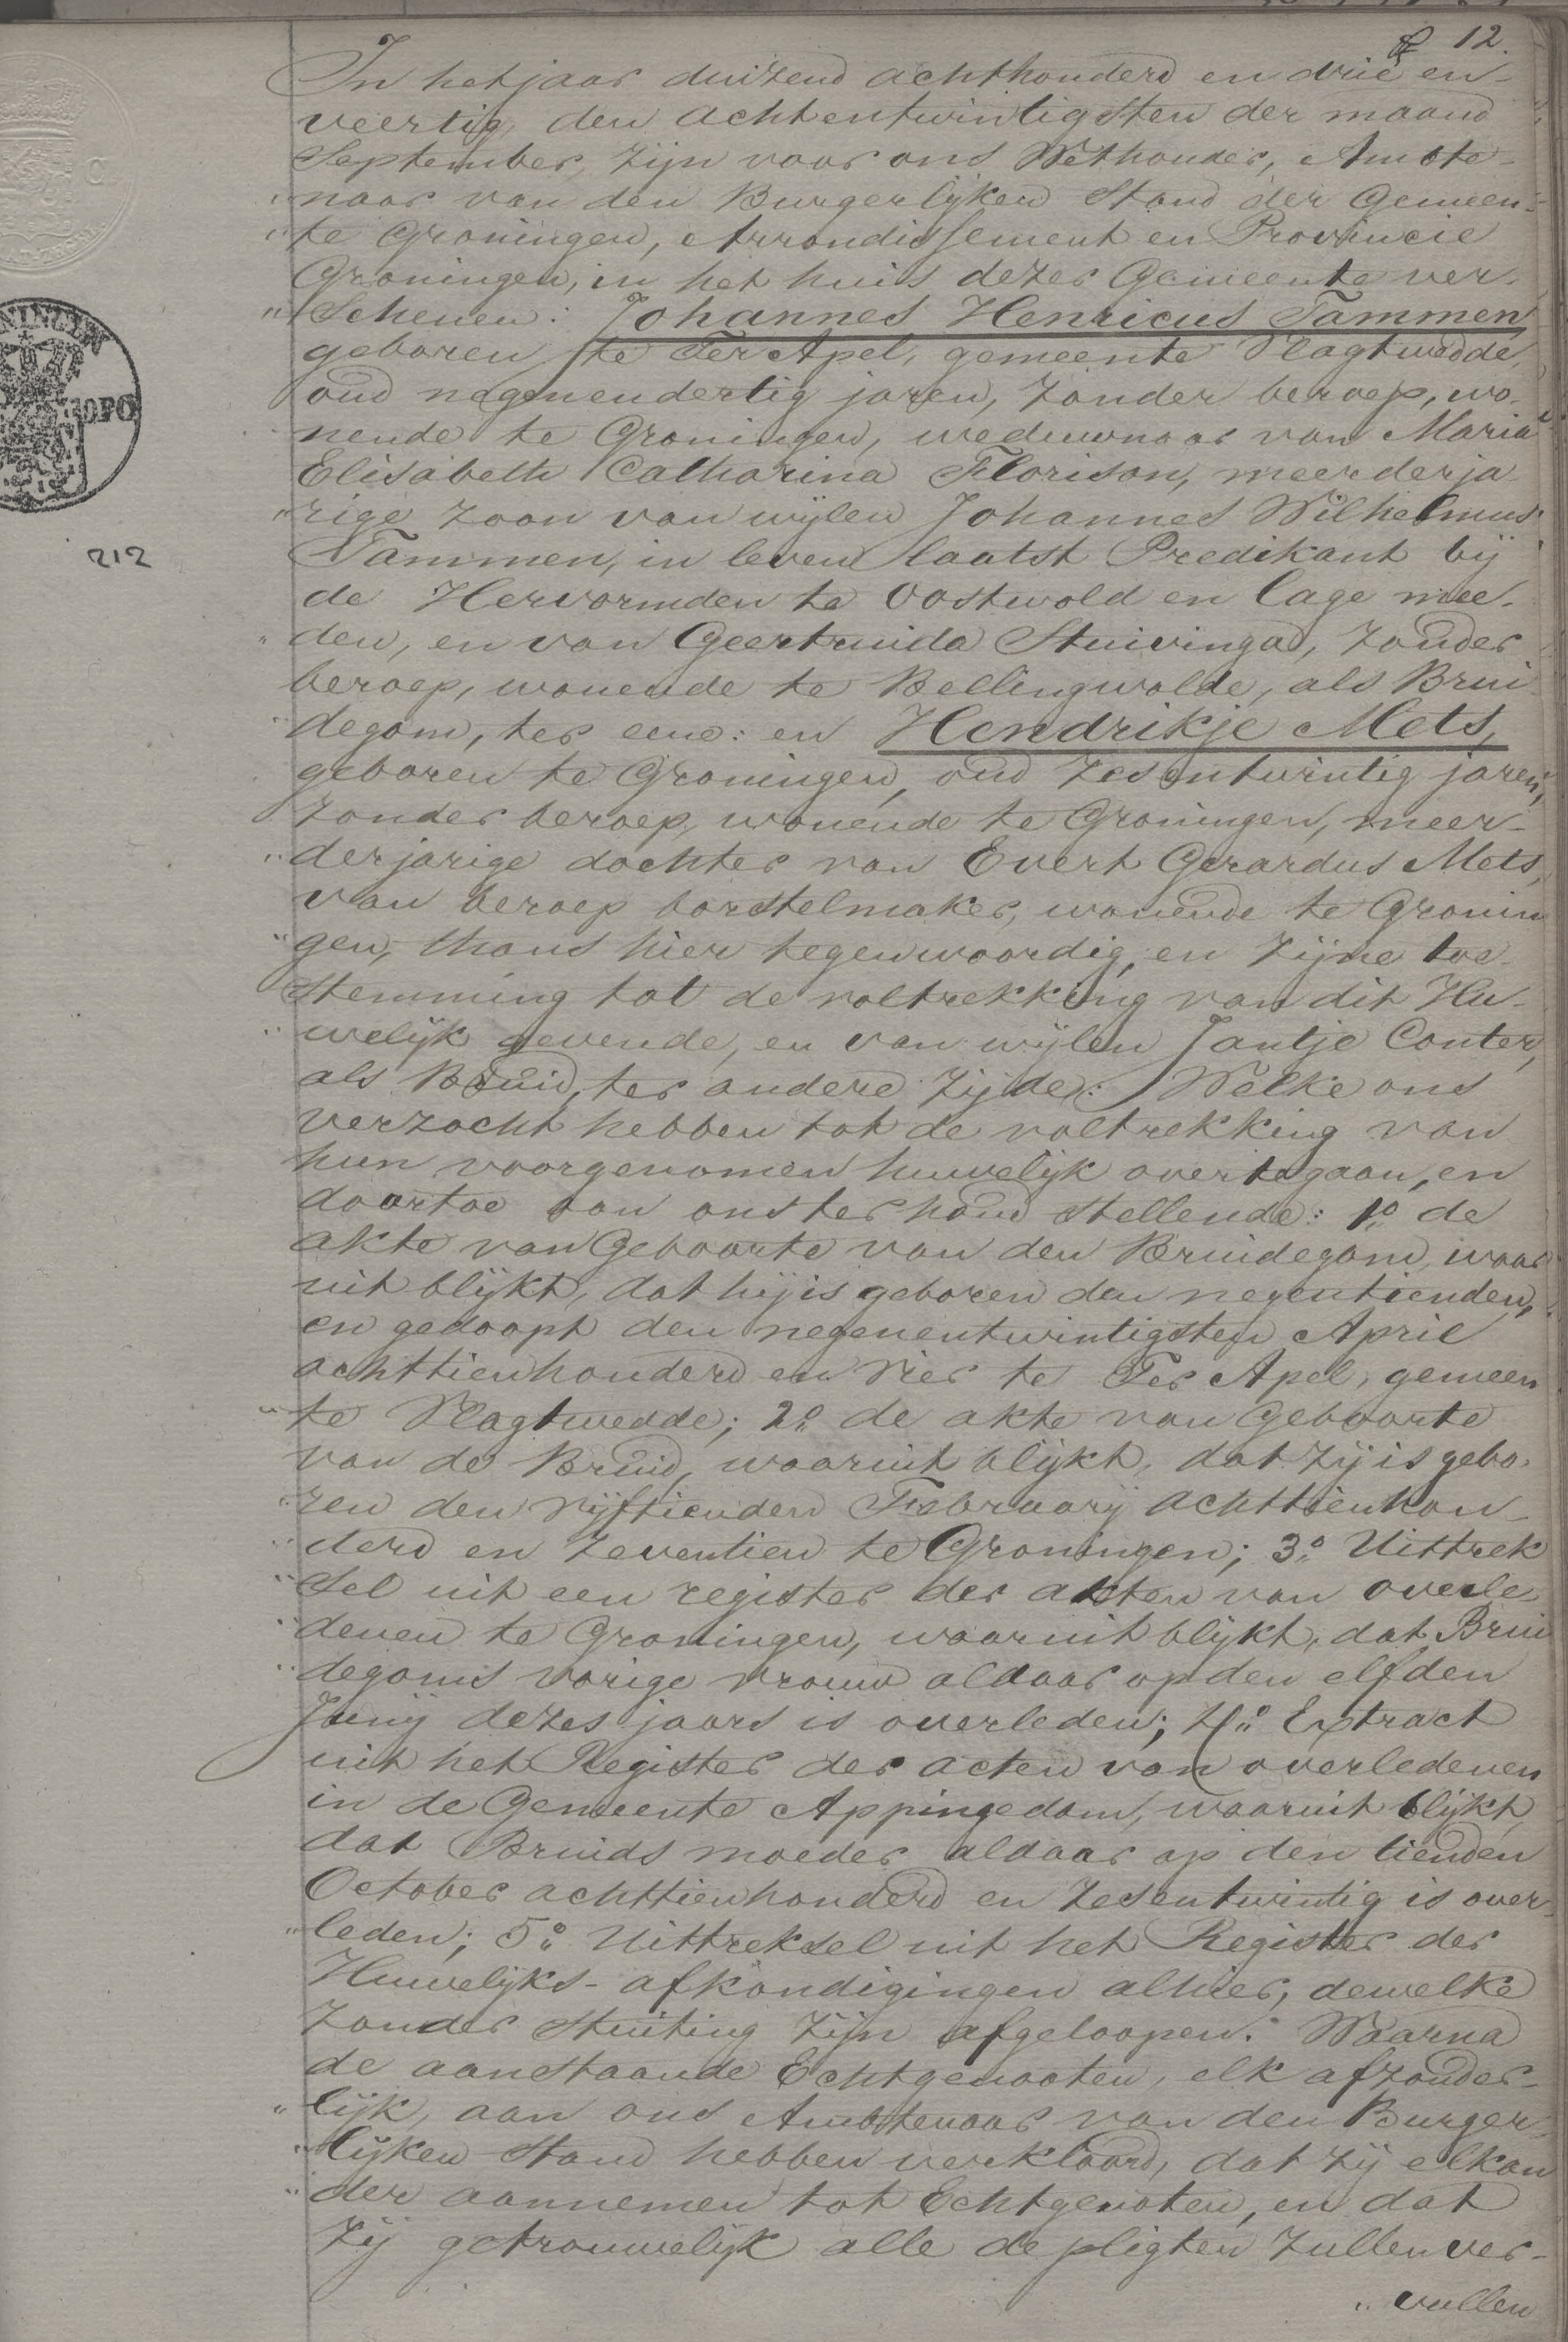 12.
In het jaar duizend achthonderd en drie en-
veertig, den achtentwintigsten der maand
September, zijn voor ons Wethouder, Ambte-
"naar van den Burgerlijken Stand der Gemeen-
"te Groningen, Arrondissement en Provincie
Groningen, in het huis dezer Gemeente ver-
"schenen: Johannes Henricus Tammen
geboren te Ter Apel, gemeente Vlagtwedde,
oud negenendertig jaren, zonder beroep, wo-
nende te Groningen, weduwnaar van Maria
Elisabeth Catharina Florison, meerderja-
"rige zoon van wijlen Johannes Wilhelmus
Tammen, in leven laatst Predikant bij
de Hervormden te Oostwold en Lage mee-
"den, en van Geertruida Stuivinga, zonder
beroep, wonende te Bellingwolde, als Brui-
"degom, ter eene: en Hendrikje Mets,
geboren te Groningen, oud zesentwintig jaren,
zonder beroep, wonende te Groningen, meer-
"derjarige dochter van Evert Gerardus Mets,
van beroep borstelmaker, wonende te Gronin
"gen, thans hier tegenwoordig, en zijne toe-
stemming tot de voltrekking van dit Hu-
"welijk gevende, en van wijlen Jantje Conter,
als Bruid, ter andere zijde: Welke ons
verzocht hebben tot de voltrekking van
hun voorgenomen huwelijk over te gaan, en
daartoe aan ons ter hand stellende: 1º de
akte van Geboorte van den Bruidegom, waar
uit blijkt, dat hij is geboren den negentienden,
en gedoopt den negenentwintigsten April
achttienhonderd en vier te Ter Apel, gemeen
"te Vlagtwedde; 2º de akte van Geboorte
van de Bruid, waaruit blijkt, dat zij is gebo-
"ren den vijftienden Februarij achttienhon-
"derd en zeventien te Groningen; 3º Uittrek
"sel uit een register der akten van overle-
"denen te Groningen, waaruit blijkt, dat Brui
"degoms vorige vrouw aldaar op den elfden
Junij dezes jaars is overleden; 4º Extract
uit het Register der acten van overledenen
in de Gemeente Appingedam, waaruit blijkt,
dat Bruids moeder aldaar op den tienden
October achttienhonderd en zesentwintig is over-
"leden; 5º Uittreksel uit het Register der
Huwelijks-afkondigingen alhier, dewelke
zonder stuiting zijn afgeloopen. Waarna
de aanstaande Echtgenooten, elk afzonder-
"lijk, aan ons Ambtenaar van den Burger-
"lijken Stand hebben verklaard, dat zij elkan
"der aannemen tot Echtgenoten, en dat
zij getrouwelijk alle de pligten zullen ver-
"vullen
212